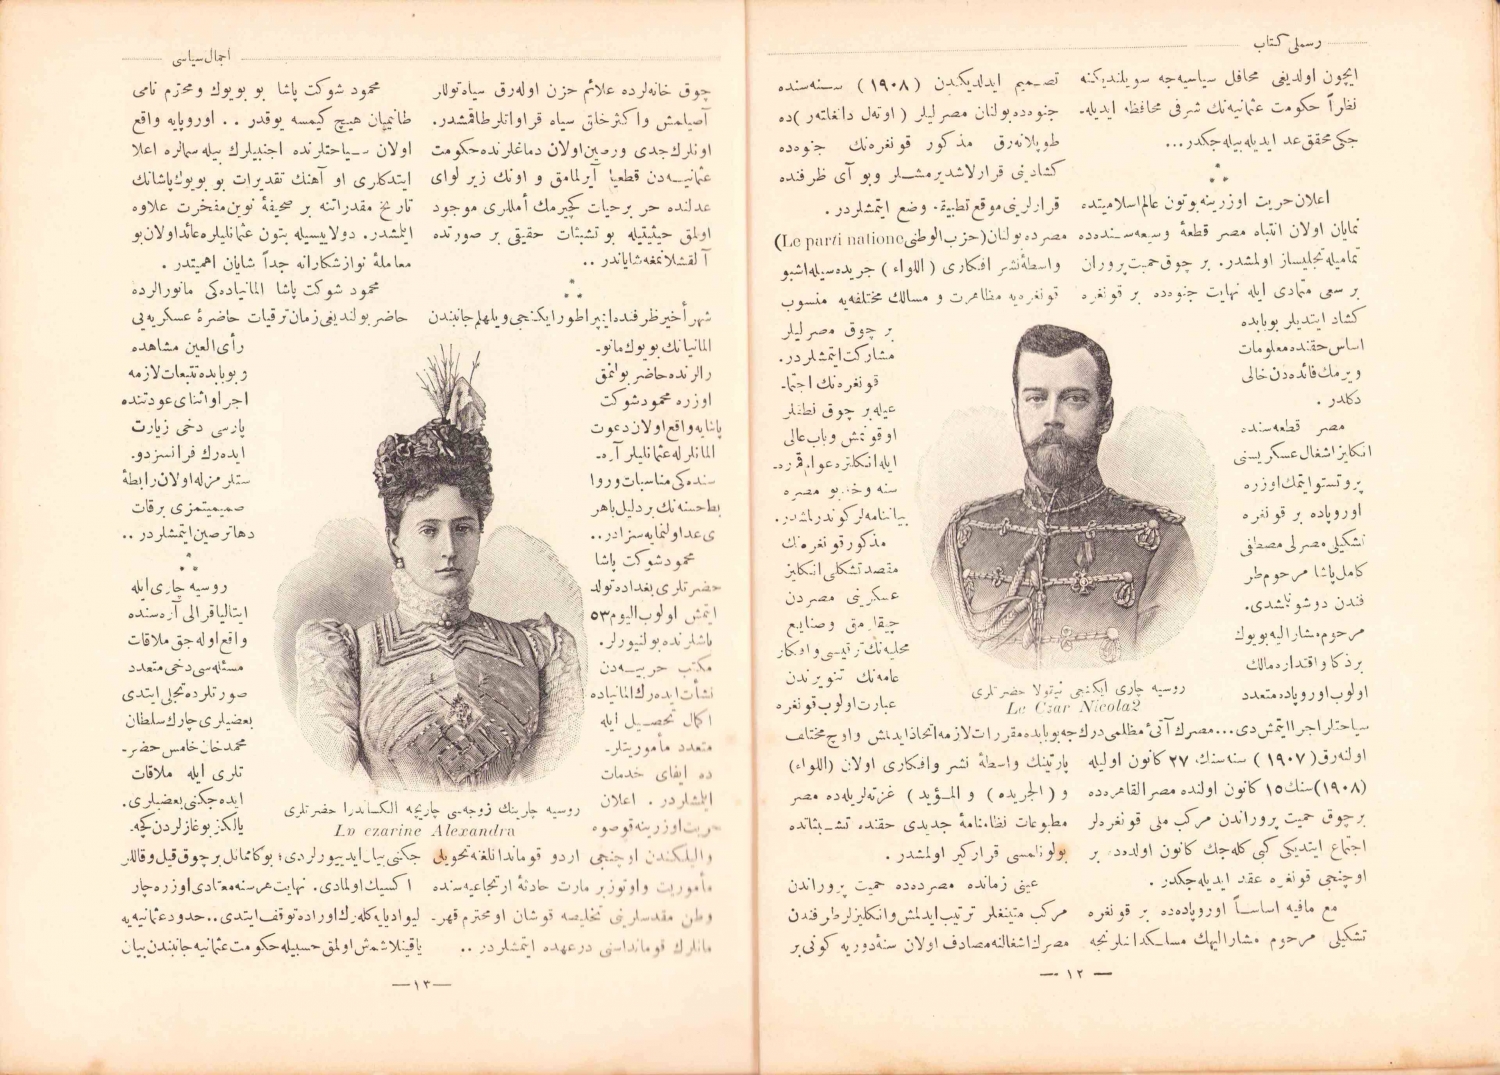 رسملی کتاب
ایچون اولدیغی محافل سیاسیه‌جه سویلندیکنه
نظراً حکومت عثمانیه‌نك شرفی محافظه ایدیله‌-
جکی محقق عد ایدیله بیله‌جکدر...
اعلان حریت اوزرینه بوتون عالم اسلامیتده
نمایان اولان انتباه مصر قطعهٔ وسیعه‌سنده‌ده
تمامیله تجلیساز اولمشدر. بر چوق حمیت پروران
بر سعی متمادی ایله نهایت جنوه‌ده بر قونغره
کشاد ایتدیلر بوبابده
اساس حقنده معلومات
ویرمك فائده‌دن خالی
دکلدر.
مصر قطعه‌سنده
انکلیز اشغال عسکریسنی
پروتستو ایتمك اوزره
اوروپاده بر قونغره
تشکیلی مصرلی مصطفی
کامل پاشا مرحوم طر
فندن دوشونلشدی.
مرحوم مشارالیه بویوك
بر ذکا و اقتداره مالك
اولوب اوروپاده متعدد
سیاحتلر اجرا ایتمش‌دی... مصرك آتیٔ مظلمی درك‌جه
اولنه‌رق (١٩٠٧) سنه‌سنك ٢٧ کانون اولیله
(١٩٠٨) سنك ١٥ کانون اولنده مصر القاهره‌ده
برچوق حمیت پروراندن مرکب ملی قونغره‌لر
اجتماع ایتدیکی کبی کله‌جك کانون اولده‌ده بر
اوچنجی قونغره عقد ایدیله‌جکدر.
مع مافیه اساساً اوروپاده‌ده بر قونغره
تشکیلی مرحوم مشارالیهك مسلکداشلرنجه
تصمیم ایدلدیکندن (١٩٠٨) سنه‌سنده
جنوه‌ده بولنان مصرلیلر (اوتل دانغلتەر)ده
طوپلانه‌رق مذکور قونغره‌نك جنوه‌ده
کشادینی قرارلاشدیرمشلر وبو آی ظرفنده
قرارلرینی موقع تطبیقه وضع ایتمشلردر.
مصرده بولنان (حزب‌الوطنی Le parti natione)
واسطهٔ نشر افکاری (اللواء) جریده‌سیله اشبو
قونغره‌یه مظاهرت و مسالك مختلفه‌یه منسوب
بر چوق مصرلیلر
مشارکت ایتمشلردر.
قونغره‌نك اجتما-
عیله بر چوق نطقلر
اوقونمش وباب عالی
ایله انکلتره عوام قمره-
سنه وخدیو مصره
بیاننامه‌لر کوندرلمشدر.
مذکور قونغره‌نك
مقصد تشکلی انکلیز
عسکرینی مصردن
چیقارمق وصنایع
محلیه‌نك ترقیسی وافکار
عامه‌نك تنویرندن
عبارت اولوب قونغره
بوبابده مقررات لازمه اتخاذ ایدلمش واوچ مختلف
پارتینك واسطهٔ نشر وافکاری اولان (اللواء)
و (الجریده) و المؤید) غزته‌لریله‌ده مصر
مطبوعات نظامنامهٔ جدیدی حقنده تشبثاتده
بولونلمسی قرارکیر اولمشدر.
عینی زمانده مصرده‌ده حمیت پروراندن
مرکب متینغلر ترتیب ایدلمش وانکلیزلر طرفندن
مصرك اشغالنه مصادف اولان سنهٔ دوریه کونی بر
روسیه چاری ایکنجی نیقولا حضرتلری
Le Czar Nicola2
— ١٢ —
اجمال سیاسی
چوق خانه‌لرده علائم حزن اوله‌رق سیاه توللر
آصیلمش واکثر خلق سیاه قراواتلر طاقمشدر.
اونلرك جدی ورصین اولان دماغلرنده حکومت
عثمانیه‌دن قطعیا آیرلمامق و اونك زیر لوای
عدلنده حر بر حیات کچیرمك أمللری موجود
اولمق حیثیتیله بو تشبثات حقیقی بر صورتده
آلقشلانمغه شایاندر..
شهر أخیر ظرفنده ایپراطور ایکنجی ویلهلم جانبندن
المانیانك بویوك مانو-
رالرنده حاضر بولنمق
اوزره محمود شوکت
پاشایه واقع اولان دعوت
المانلرله عثمانلیلر آره-
سنده‌کی مناسبات وروا
بط حسنه‌نك بر دلیل باهر
ی عد اولنمایه سزادر..
محمود شوکت پاشا
حضرتلری بغدادده تولد
ایتمش اولوب الیوم ٥٣
یاشلرنده بولنیورلر.
مکتب حربیه‌دن
نشأت ایده‌رك المانیاده
اکمال تحصیل ایله
متعدد مأموریتلر-
ده ایفای خدمات
ایلمشلردر. اعلان
حریت اوزرینه قوصوه
والیلکندن اوچنجی اردو قوماندانلغنه تحویل
مأموریت واوتوز بر مارت حادثهٔ ارتجاعیه‌سنده
وطن مقدسلرینی تخلیصه قوشان او محترم قهر-
مانلرك قوماندانسنی درعهده ایتمشلردر..
محمود شوکت پاشا بو بویوك ومحترم نامی
طانیمیان هیچ کیمسه یوقدر.. اوروپایه واقع
اولان سیاحتلرنده اجنبیلرك بیله سمالره اعلا
ایتدکلری او آهنك تقدیرات بو بویوك پاشانك
تاریخ مقدراتنه بر صحیفهٔ نوین مفخرت علاوه
ایلمشدر. دولاییسیله بتون عثمانلیلره عائد اولان بو
معاملهٔ نوازشکارانه جداً شایان اهمیتدر.
محمود شوکت پاشا المانیاده‌کی مانورالرده
حاضر بولندیغی زمان ترقیات حاضرهٔ عسکریه‌یی
رأی العین مشاهده
وبوبابده تتبعات لازمه
اجرا واثنای عودتنده
پارسی دخی زیارت
ایده‌رك فرانسز دو-
ستلرمزله اولان رابطهٔ
صمیمیتمزی برقات
دها ترصین ایتمشلردر..
روسیه چاری ایله
ایتالیا قرالی آره‌سنده
واقع اوله‌جق ملاقات
مسئله‌سی دخی متعدد
صورتلرده تجلی ایتدی
بعضیلری چارك سلطان
محمد خان خامس حضر-
تلری ایله ملاقات
ایده‌جکنی بعضیلری
یالکز بوغازلردن کچه-
جکنی بیان ایدییورلردی؛ بوکا مماثل بر چوق قیل وقاللر
اکسیك اولمادی. نهایت هر سنه معتادی اوزره چار
لیوادیایه کله‌رك اوراده توقف ایتدی.. حدود عثمانیه‌یه
یاقینلاشمش اولمق حسبیله حکومت عثمانیه جانبندن بیان
روسیه چارینك زوجه‌سی چاریچه الکساندرا حضرتلری
La czarine Alexandra
— ١٣ —